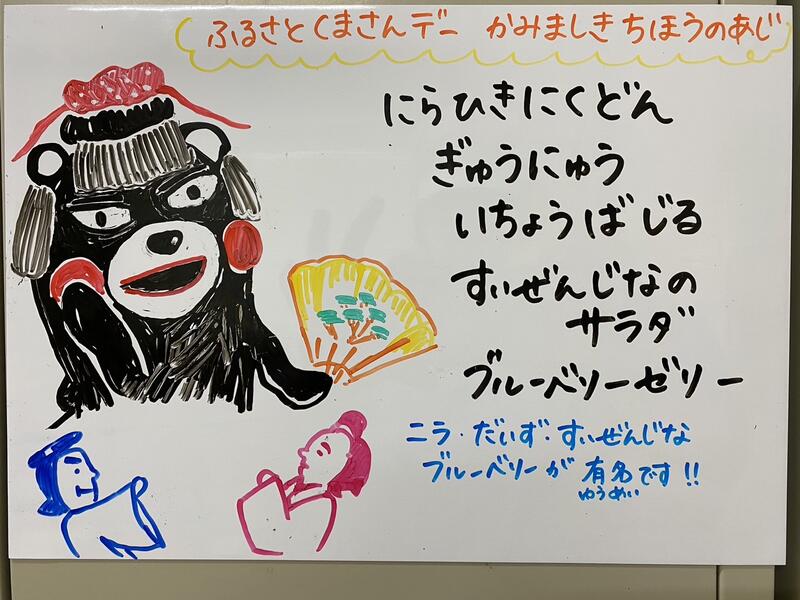 ふるさとくまさんデー かみましきちほうのあじ
にらひきにくどん
ぎゅうにゅう
いちょうばじる
すいぜんじなの
サラダ
ブルーベリーゼリー
ニラ・だいず・すいぜんじな
ブルーベリーが 有名です!!
ゆうめい